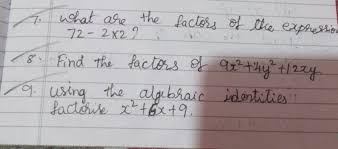 7. What are the factors of the expression
72 - 2x2?
8. Find the factors of 9x²+4y²+12xy.
9. using the algebraic identities
factorise x²+6x+9.